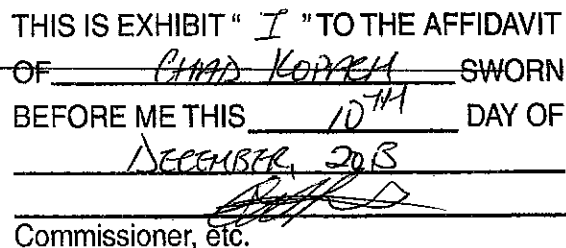 THIS IS EXHIBIT " I " TO THE AFFIDAVIT
OF CHAD SWORN
BEFORE ME THIS 10TH DAY OF
DECEMBER, 2013
Commissioner, etc.